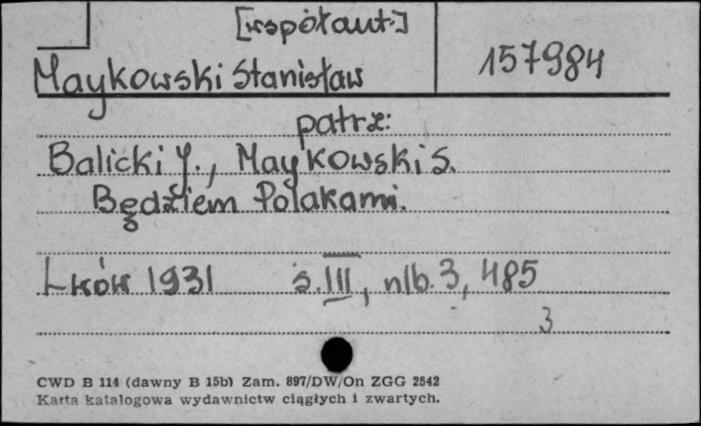 [współaut.]
Maykowski Stanisław
157984
patrz:
Balicki J., Maykowski S.
Będziem Polakami.
Lwów 1931 s. III, nlb. 3, 485
3
CWD B 114 (dawny B 15b) Zam. 897/DW/On ZGG 2542
Karta katalogowa wydawnictw ciągłych i zwartych.